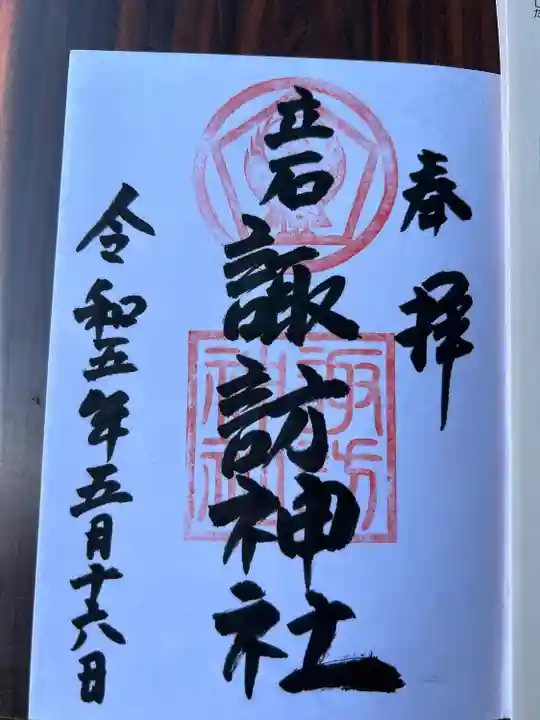 奉拝
立石
諏訪神社
諏訪
神社
令和五年五月十六日